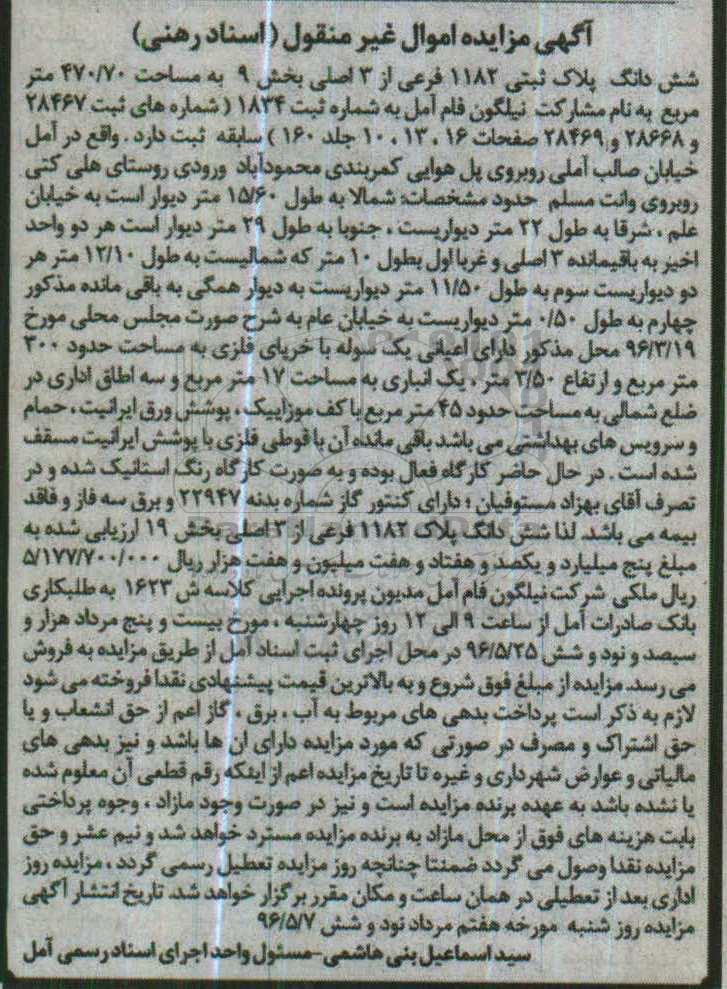 آگهی مزایده اموال غیر منقول (اسناد رهنی)
شش دانگ پلاک ثبتی ۱۱۸۲ فرعی از ۳ اصلی بخش ۹ به مساحت ۴۷۰/۷۰ متر
مربع به نام مشارکت نیلگون فام آمل به شماره ثبت ۱۸۳۴ ( شماره های ثبت ۲۸۴۶۷
و ۲۸۶۶۸ و ۲۸۴۶۹ صفحات ۱۶ ، ۱۳ ، ۱۰ جلد ۱۶۰ ) سابقه ثبت دارد . واقع در آمل
خیابان صالب آملی روبروی پل هوایی کمربندی محمودآباد ورودی روستای هلی کتی
روبروی وانت مسلم حدود مشخصات: شمالا به طول ۱۵/۶۰ متر دیوار است به خیابان
علم ، شرقا به طول ۲۲ متر دیواریست ، جنوبا به طول ۲۹ متر دیوار است هر دو واحد
اخیز به باقیمانده ۳ اصلی و غربا اول بطول ۱۰ متر که شمالیست به طول ۱۲/۱۰ متر هر
دو دیواریست سوم به طول ۱۱/۵۰ متر دیواریست به دیوار همگی به باقی مانده مذکور
چهارم به طول ۰/۵۰ متر دیواریست به خیابان عام به شرح صورت مجلس محلی مورخ
۹۶/۳/۱۹ محل مذکور دارای اعیانی یک سوله با خرپای فلزی به مساحت حدود ۳۰۰
متر مربع و ارتفاع ۳/۵۰ متر ، یک انباری به مساحت ۱۷ متر مربع و سه اطاق اداری در
ضلع شمالی به مساحت حدود ۴۵ متر مربع با کف موزاییک ، پوشش ورق ایرانیت ، حمام
و سرویس های بهداشتی می باشد باقی مانده آن با قوطی فلزی با پوشش ایرانیت مسقف
شده است . در حال حاضر کارگاه فعال بوده و به صورت کارگاه رنگ استاتیک شده و در
تصرف آقای بهزاد مستوفیان ؛ دارای کنتور گاز شماره بدنه ۲۲۹۴۷ و برق سه فاز و فاقد
بیمه می باشد. لذا شش دانگ پلاک ۱۱۸۲ فرعی از ۳ اصلی بخش ۱۹ ارزیابی شده به
مبلغ پنج میلیارد و یکصد و هفتاد و هفت میلیون و هفت هزار ریال ۵/۱۷۷/۷۰۰/۰۰۰
ریال ملکی شرکت نیلگون فام آمل مدیون پرونده اجرایی کلاسه ش ۱۶۲۳ به طلبکاری
بانک صادرات آمل از ساعت ۹ الی ۱۲ روز چهارشنبه ، مورخ بیست و پنج مرداد هزار و
سیصد و نود و شش ۹۶/۵/۲۵ در محل اجرای ثبت اسناد آمل از طریق مزایده به فروش
می رسد. مزایده از مبلغ فوق شروع و به بالاترین قیمت پیشنهادی نقدا فروخته می شود
لازم به ذکر است پرداخت بدهی های مربوط به آب ، برق ، گاز اعم از حق انشعاب و یا
حق اشتراک و مصرف در صورتی که مورد مزایده دارای ان ها باشد و نیز بدهی های
مالیاتی و عوارض شهرداری و غیره تا تاریخ مزایده اعم از اینکه رقم قطعی آن معلوم شده
یا نشده باشد به عهده برنده مزایده است و نیز در صورت وجود مازاد ، وجوه پرداختی
بابت هزینه های فوق از محل مازاد به برنده مزایده مسترد خواهد شد و نیم عشر و حق
مزایده نقدا وصول می گردد ضمنتا چنانچه روز مزایده تعطیل رسمی گردد ، مزایده روز
اداری بعد از تعطیلی در همان ساعت و مکان مقرر برگزار خواهد شد. تاریخ انتشار آگهی
مزایده روز شنبه مورخه هفتم مرداد نود و شش ۹۶/۵/۷
سید اسماعیل بنی هاشمی-مسئول واحد اجرای اسناد رسمی آمل